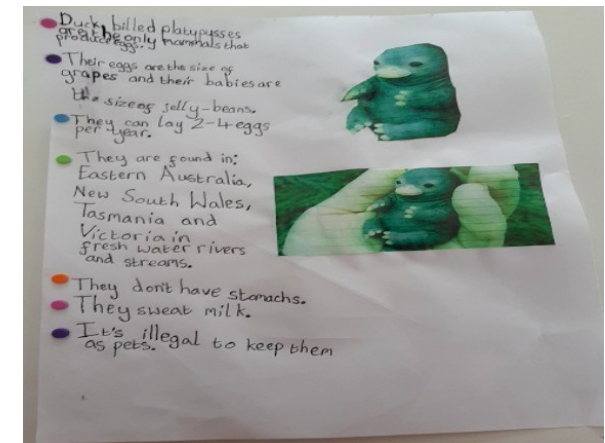 Duck billed platypusses
are the only mammals that
produce eggs.
Their eggs are the size of
grapes and their babies are
the size of jelly-beans.
They can lay 2-4 eggs
per year.
They are found in:
Eastern Australia,
New South Wales,
Tasmania and
Victoria in
fresh water rivers
and streams.
They don't have stomachs.
They sweat milk.
It's illegal to keep them
as pets.